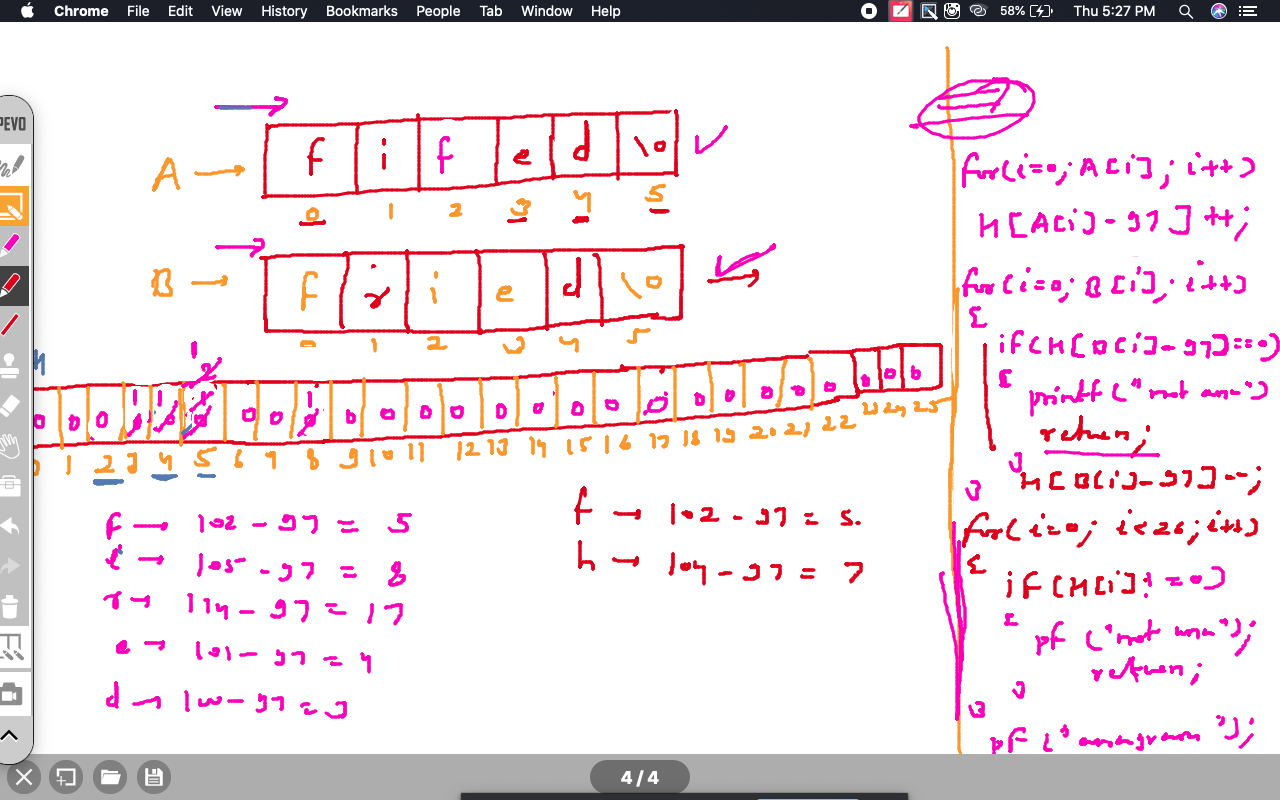 Chrome File Edit View History Bookmarks People Tab Window Help 58% Thu 5:27 PM
PEVO
A → f i f e d \0
0 1 2 3 4 5
B → f r i e d \0
0 1 2 3 4 5
H
1
2
1 1 1 1
0 0 0 0 0 0 0 0 0 0 0 0 0 0 0 0 0 0 0 0 0 0 0 0 0 0
1 2 3 4 5 6 7 8 9 10 11 12 13 14 15 16 17 18 19 20 21 22 23 24 25
f → 102 - 97 = 5
i → 105 - 97 = 8
r → 114 - 97 = 17
e → 101 - 97 = 4
d → 100 - 97 = 3
f → 102 - 97 = 5.
h → 104 - 97 = 7
for(i=0; A[i]; i++)
H[A[i]-97]++;
for(i=0; B[i]; i++)
{
if(H[B[i]-97]==0)
{
printf("not ana")
return;
}
H[B[i]-97]--;
}
for(i=0; i<26; i++)
{
if(H[i]!=0)
{
pf("not ana");
return;
}
}
pf("anagram");
4/4